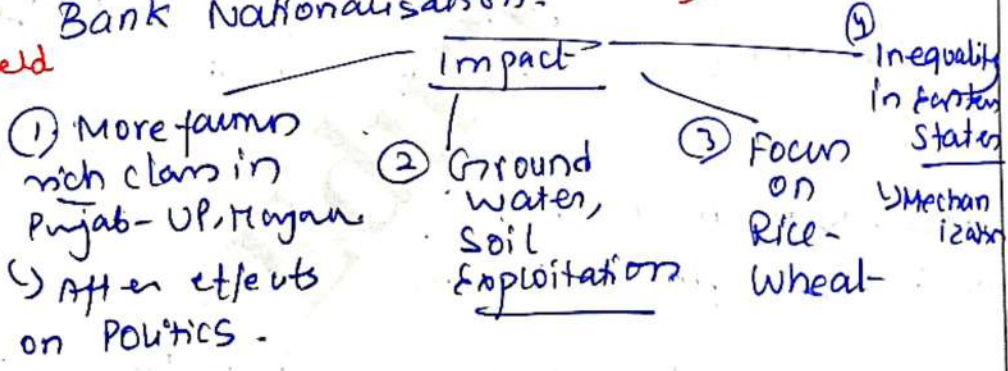 Bank Nationalisation.
eld
Impact
① More farmers
rich class in
Punjab-UP, Haryana
↳ After effects
on Politics.
② Ground
water,
Soil
Exploitation
③ Focus
on
Rice-
Wheat
④
Inequality
in Eastern
States
↳ Mechan
ization